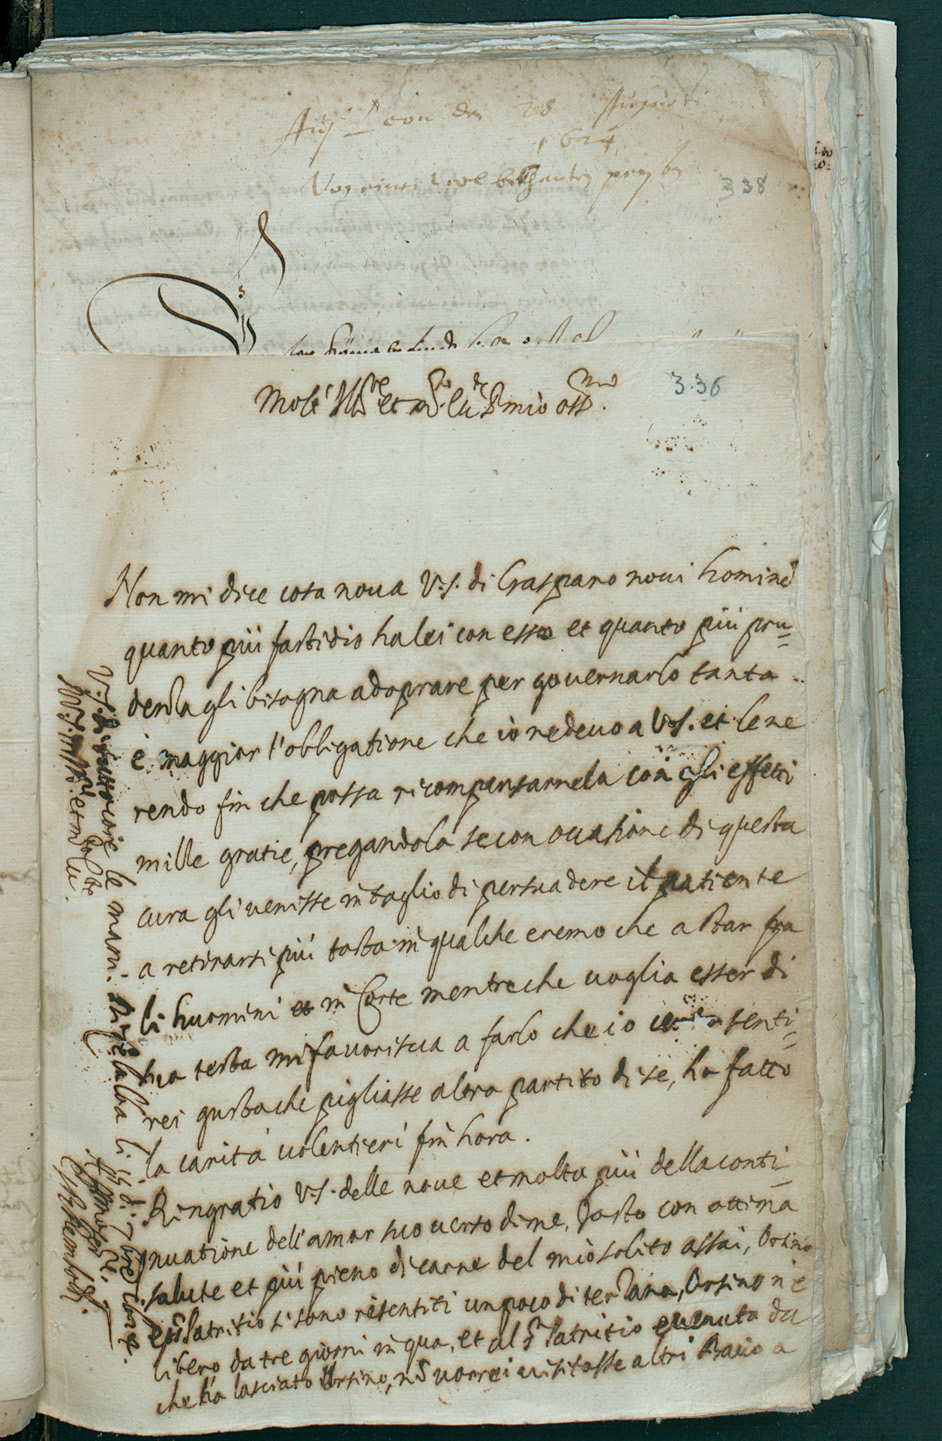 28 Augusti
1624
338
Molt' Ill.re et m.to ecc.te S.r mio oss.mo
336
Non mi dice cosa noua V.S. di Gasparo noui hominē
quanto più fastidio ha lei con esso et quanto più pru-
denza gli bisogna adoprare per gouernarlo tanta
è maggior l'obbligatione che io ne deuo a V.S. et le ne
rendo fin che possa ricompensarnela con gli effetti
mille gratie, pregandola se con occasione di questa
cura gli uenisse in taglio di persuadere il patiente
a retirarsi più tosto in qualche eremo che a star fra
li huomini et in Corte mentre che uoglia esser di
sua testa mi fauorisca a farlo che io senti-
rei gusto che pigliasse altro partito di se, ho fatto
la carità uolentieri fin hora.
Ringratio V.S. delle noue et molto più della conti-
nuatione dell'amor suo uerso di me. Io sto con ottima
salute et più pieno di carne del mio solito assai, Orsino
e'l S.r Patritio si sono risentiti un poco di terzana, Orsino n'è
libero da tre giorni in qua, et al S.r Patritio è uenuta da
che l'ha lasciato Orsino, nō uorrei uisitasse altri Bacio a
V.S. di tutto core le mani. Di li 15 di 7bre
Di V.S. molto Ill.re et m.to ecc.te